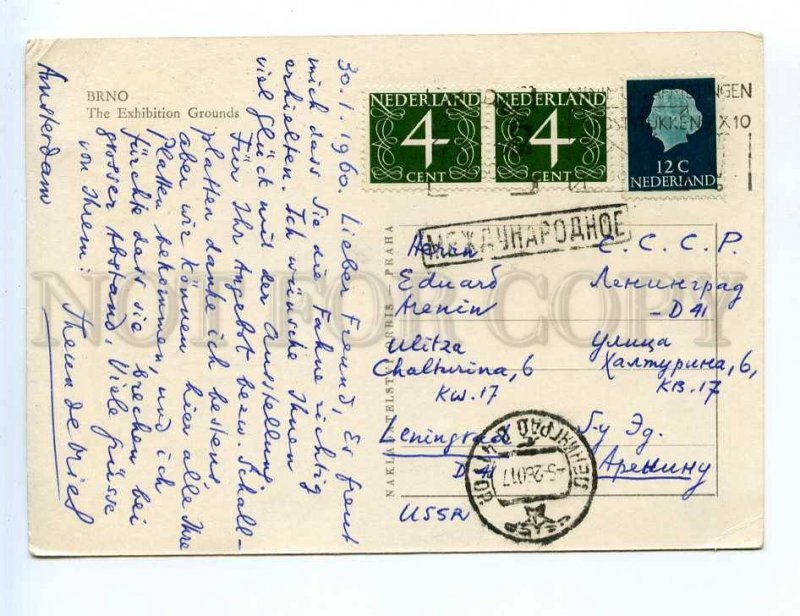 BRNO
The Exhibition Grounds
30.1.1960. Lieber Freund, Es freut
mich dass Sie die Fahne richtig
erhielten. Ich wünsche Ihnen
viel glück mit der Ausstellung
Für Ihr Angebot bezw. Schall-
platten danke ich bestens
aber wir können hier alle Ihre
Platten bekommen, und ich
fürchte dass sie brechen bei
grosser Abstand. Viele Grüsse
von Ihrem: Theun de Vries
Amsterdam
NEDERLAND
4
CENT
NEDERLAND
4
CENT
12 C
NEDERLAND
МЕЖДУНАРОДНОЕ
Eduard
Arenin
Ulitza
Chalturina, 6
KW. 17
Leningrad
D 41
USSR
С.С.С.Р.
Ленинград
-D 41
улица
Халтурина, 6,
кв. 17
Гр Эд.
Аренину
ЛЕНИНГРАД
PRAHA
NOT FOR COPY